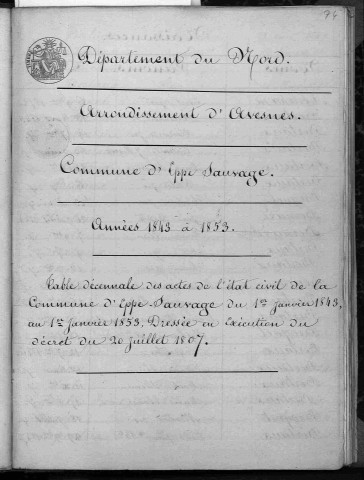 74
Département du Nord.
Arrondissement d'Avesnes.
Commune d'Eppe Sauvage.
Années 1843 à 1853.
Table décennale des actes de l'état civil de la
Commune d'Eppe-Sauvage du 1er janvier 1843,
au 1er Janvier 1853, Dressée en Exécution du
décret du 20 juillet 1807.